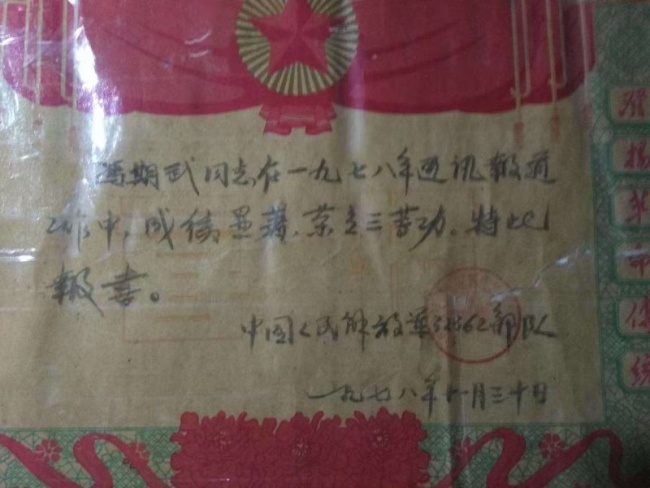 冯期武同志在一九七八年通讯报道
工作中,成绩显著,荣立三等功。特此
报喜。
中国人民解放军52862部队
一九七八年十一月三十日
发
扬
革
命
传
统